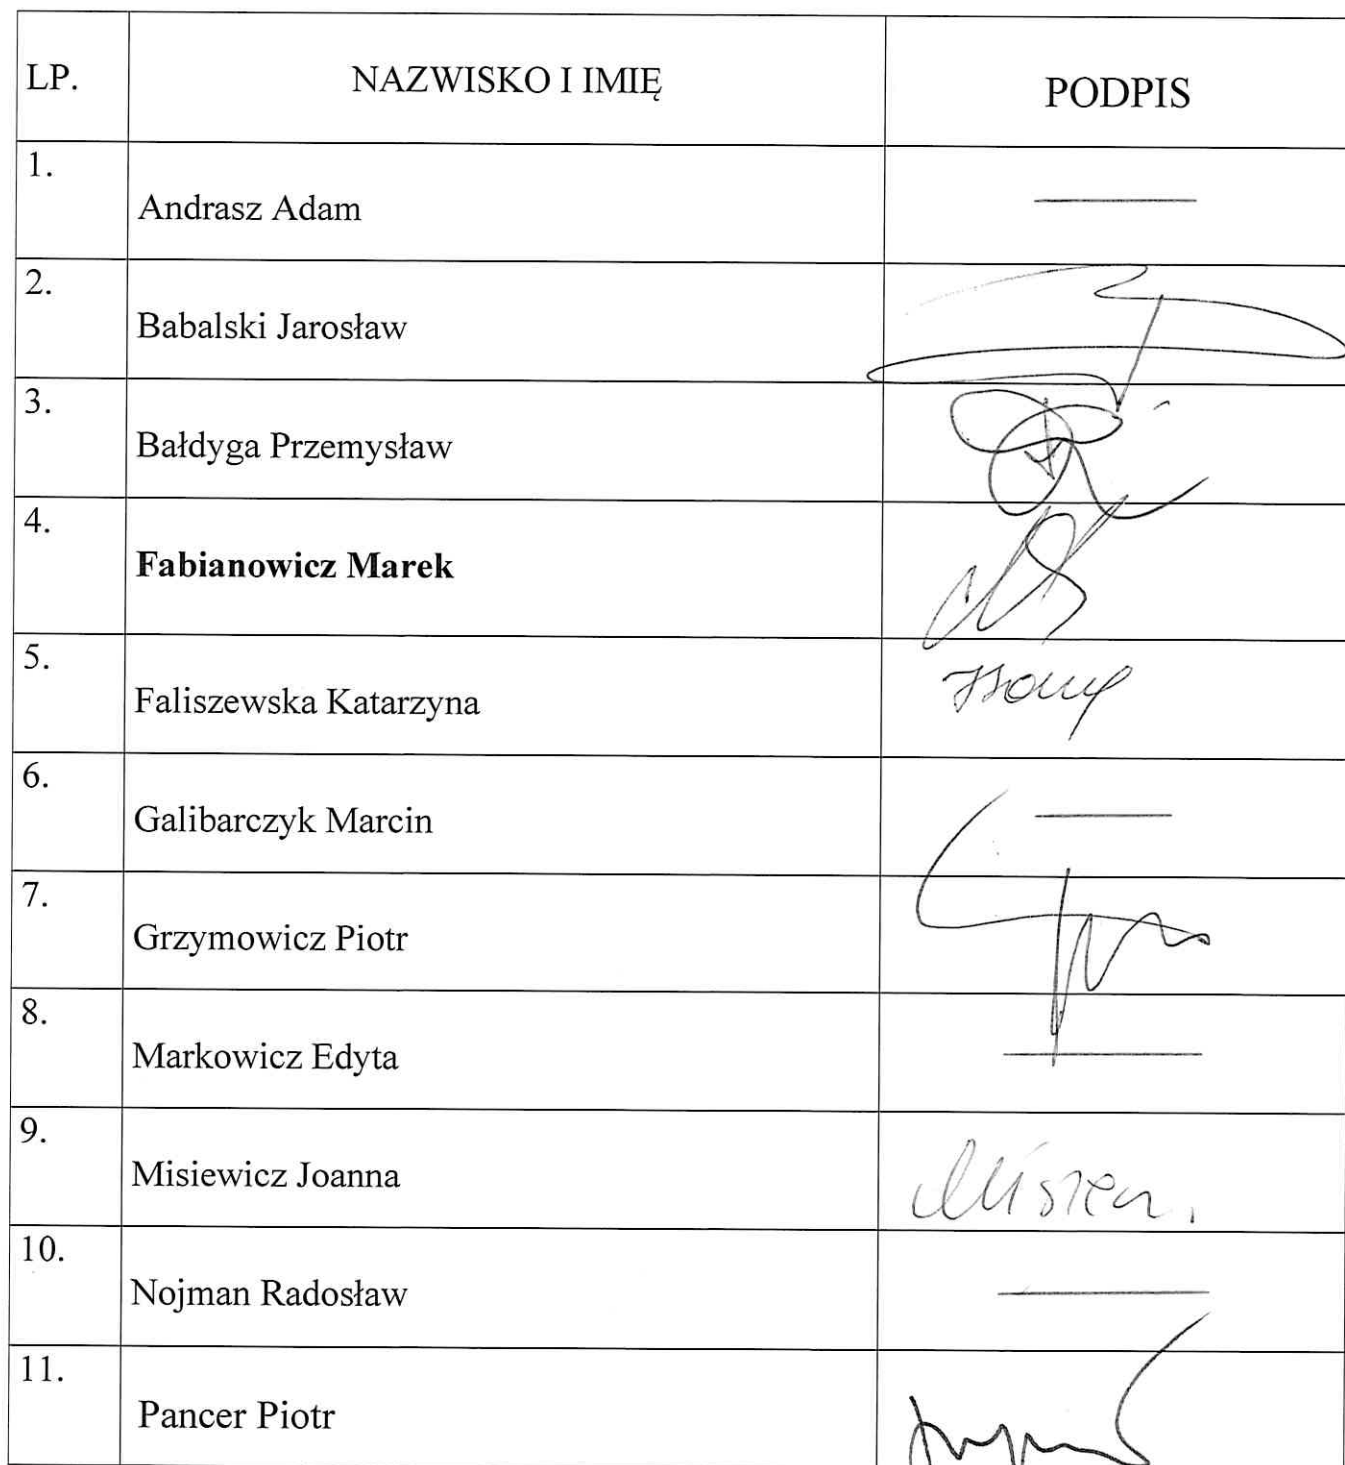 LP. NAZWISKO I IMIĘ PODPIS
1. Andrasz Adam
2. Babalski Jarosław
3. Bałdyga Przemysław
4. Fabianowicz Marek
5. Faliszewska Katarzyna
6. Galibarczyk Marcin
7. Grzymowicz Piotr
8. Markowicz Edyta
9. Misiewicz Joanna
10. Nojman Radosław
11. Pancer Piotr